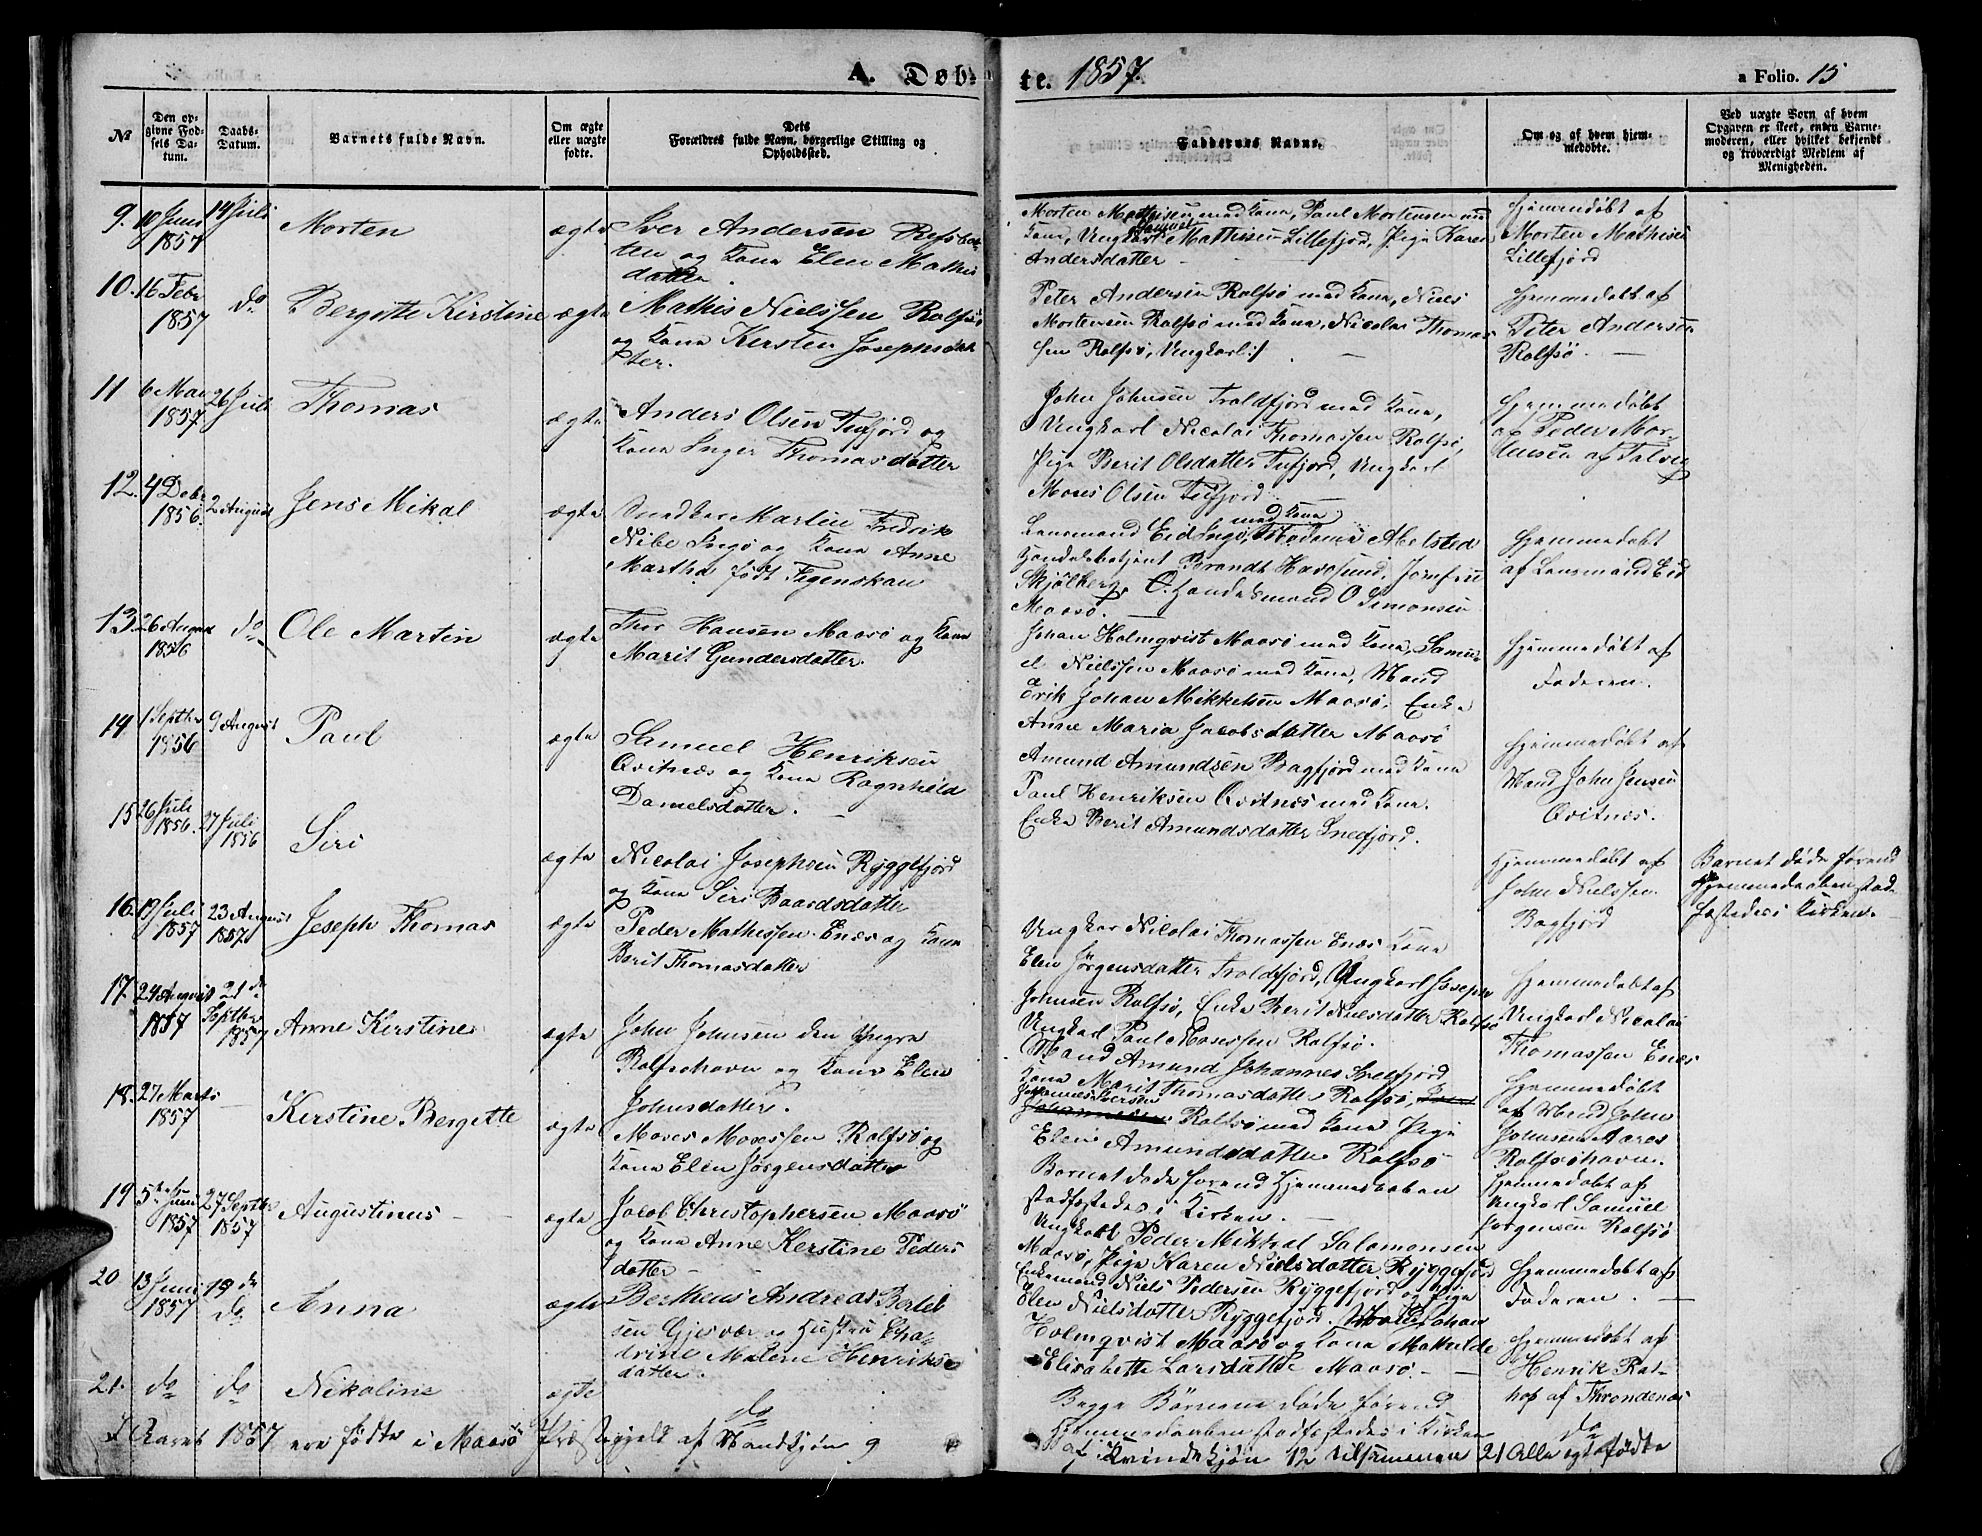 A. Døb-
te. 1857.
a Folio. 15
№
Den op-
givne Fød-
sels Da-
tum.
Daabs-
Datum.
Barnets fulde Navn.
Om ægte
eller uægte
fødte.
Dets
Forældres fulde Navn, borgerlige Stilling og
Opholdssted.
Faddernes Navne.
Om og af hvem hjem-
medøbte.
Ved uægte Børn af hvem
Opgaven er skeet, enten Barne-
moderen, eller hvilket bekjendt
og troværdigt Medlem af
Menigheden.
9. 10 Juni
1857
14 Juli
Morten
ægte
Iver Andersen Refsbot-
ten og Kone Elen Mathis
datter.
Morten Mathisen med Kone, Paul Mortensen med
Samuel
Kone, Ungkarl Mathisen Lillefjord, Pige Karen
Andersdatter
Hjemmedøbt af
Morten Mathisen
Lillefjord
10. 16 Febr
1857
do
Bergitte Kirstine
ægte
Mathis Nielssen Rolfsø
og Kone Kersten Josephsdat
ter.
Peter Andersen Rolfsø med Kone, Niels
Mortensen Rolfsø med Kone, Nicolai Thomas
sen Rolfsø, Ungkarl
Hjemmedøbt af
Peter Andersen
Rolfsø.
11 6 Mai
1857
26 Juli
Thomas
ægte
Anders Olsen Tufjord og
Kone Inger Thomasdatter
John Johnsen Troldfjord med Kone,
Ungkarl Nicolai Thomassen Rolfsø,
Pige Berit Olsdatter Tufjord, Ungkarl
Moses Olsen Tufjord
Hjemmedøbt
af Peder Mor-
tensen af Talvig
12. 4 Debr
1856.
2 August
Jens Mikal
ægte
Snedker Martin Fredrik
Nibe Ingø og Kone Anne
Martha født Figenskau
med Kone
Lensmand Eid Ingø, Madame Abelsted
Handelsbetjent Brandt Havøsund, Jomfru
Skjølberg, Handelsmand O Simonsen
Maasø.
Hjemmedøbt
af Lensmand Eid
13. 26 August
1856
do
Ole Martin
ægte
Thor Hansen Maasø og Kone
Marit Gundersdatter.
Johan Holmqvist Maasø med Kone, Samu-
el Nielssen Maasø med Kone, Mand
Erik Johan Mikkelsen Maasø, Enke
Anne Maria Jacobsdatter Maasø
Hjemmedøbt af
Faderen.
14 1 Septbr
1856
9 August
Paul
ægte
Samuel Henriksen
Qvitnæs og Kone Ragnheld
Danielsdatter.
Amund Amundsen Bagfjord med Kone
Paul Henriksen Qvitnæs med Kone.
Enke Berit Amundsdatter Snefjord.
Hjemmedøbt af
Mand John Jensen
Qvitnæs.
15 26 Juli
1856.
27 Juli
1856
Siri
ægte
Nicolai Josephsen Ryggefjord
og Kone Siri Baardsdatter
Hjemmedøbt af
John Nielssen
Bagfjord
Barnet døde forend
Hjemmedaaben stad-
fæstedes i Kirken.
16. 19 Juli
1857
23 August
1857
Joseph Thomas
ægte
Peder Mathissen Enæs og Kone
Berit Thomasdatter
Ungkar Nicolai Thomassen Enæs Kone
Elen Jørgensdatter Troldfjord, Ungkarl Joseph
Johnsen Rolfsø, Enke Berit Nielsdatter Rolfsø
Ungkarl Paul Mosessen Rolfsø.
Hjemmedøbt af
Ungkarl Nicolai
Thomassen Enæs
17. 24 August
1857
21 de
Septbr
1857
Anne Kerstine
ægte
John Johnsen den Yngre
Rolfsøhavn og Kone Elen
Johnsdatter.
Mand Amund Johannes Snefjord
Kone Marit Thomasdatter Rolfsø,
Rolfsø med Kone Pige
Elen Amundsdatter Rolfsø
Hjemmedøbt
af Mand John
Johnsen
Rolfsøhavn.
18. 27 Marts
1857
Kerstine Bergette
ægte
Moses Mosessen Rolfsø og
Kone Elen Jørgensdatter
Barnet døde forend Hjemmedaaben
stadfæstedes i Kirken.
Hjemmedøbt af
Ungkarl Samuel
Jørgensen Rolfsø
19 5te Juni
1857
27 Septbr
1857
Augustinus
ægte
Jacob Christophersen Maasø
og Kone Anne Kerstine Peders
datter
Ungkarl Peder Mikkal Salomonsen
Maasø, Pige Karen Nielsdatter Ryggefjord
Enkemand Niels Pedersen Ryggefjord og Pige
Elen Nielsdatter Ryggefjord. Johan
Holmqvist Maasø og Kone Mathilde
Elisabette Larsdatter Maasø.
Hjemmedøbt af
Faderen.
20 13 Juni
1857
19 de
do
Anna
ægte
Bertheus Andreas Bertel
sen Gjesvær og Hustru Cha-
trine Malene Henriks
datter.
Begge Børnene døde forend
Hjemmedaaben stadfæstedes i Kirken
Hjemmedøbt af
Henrik Rat-
hop af Throndenæs
21. do
do
Nikoline
ægte
do
do
I Aaret 1857 ere fødte i Maasø Præstegjeld af Mandkjøn 9
af Kvindekjøn 12 tilsammen 21 Alle ægte fødte